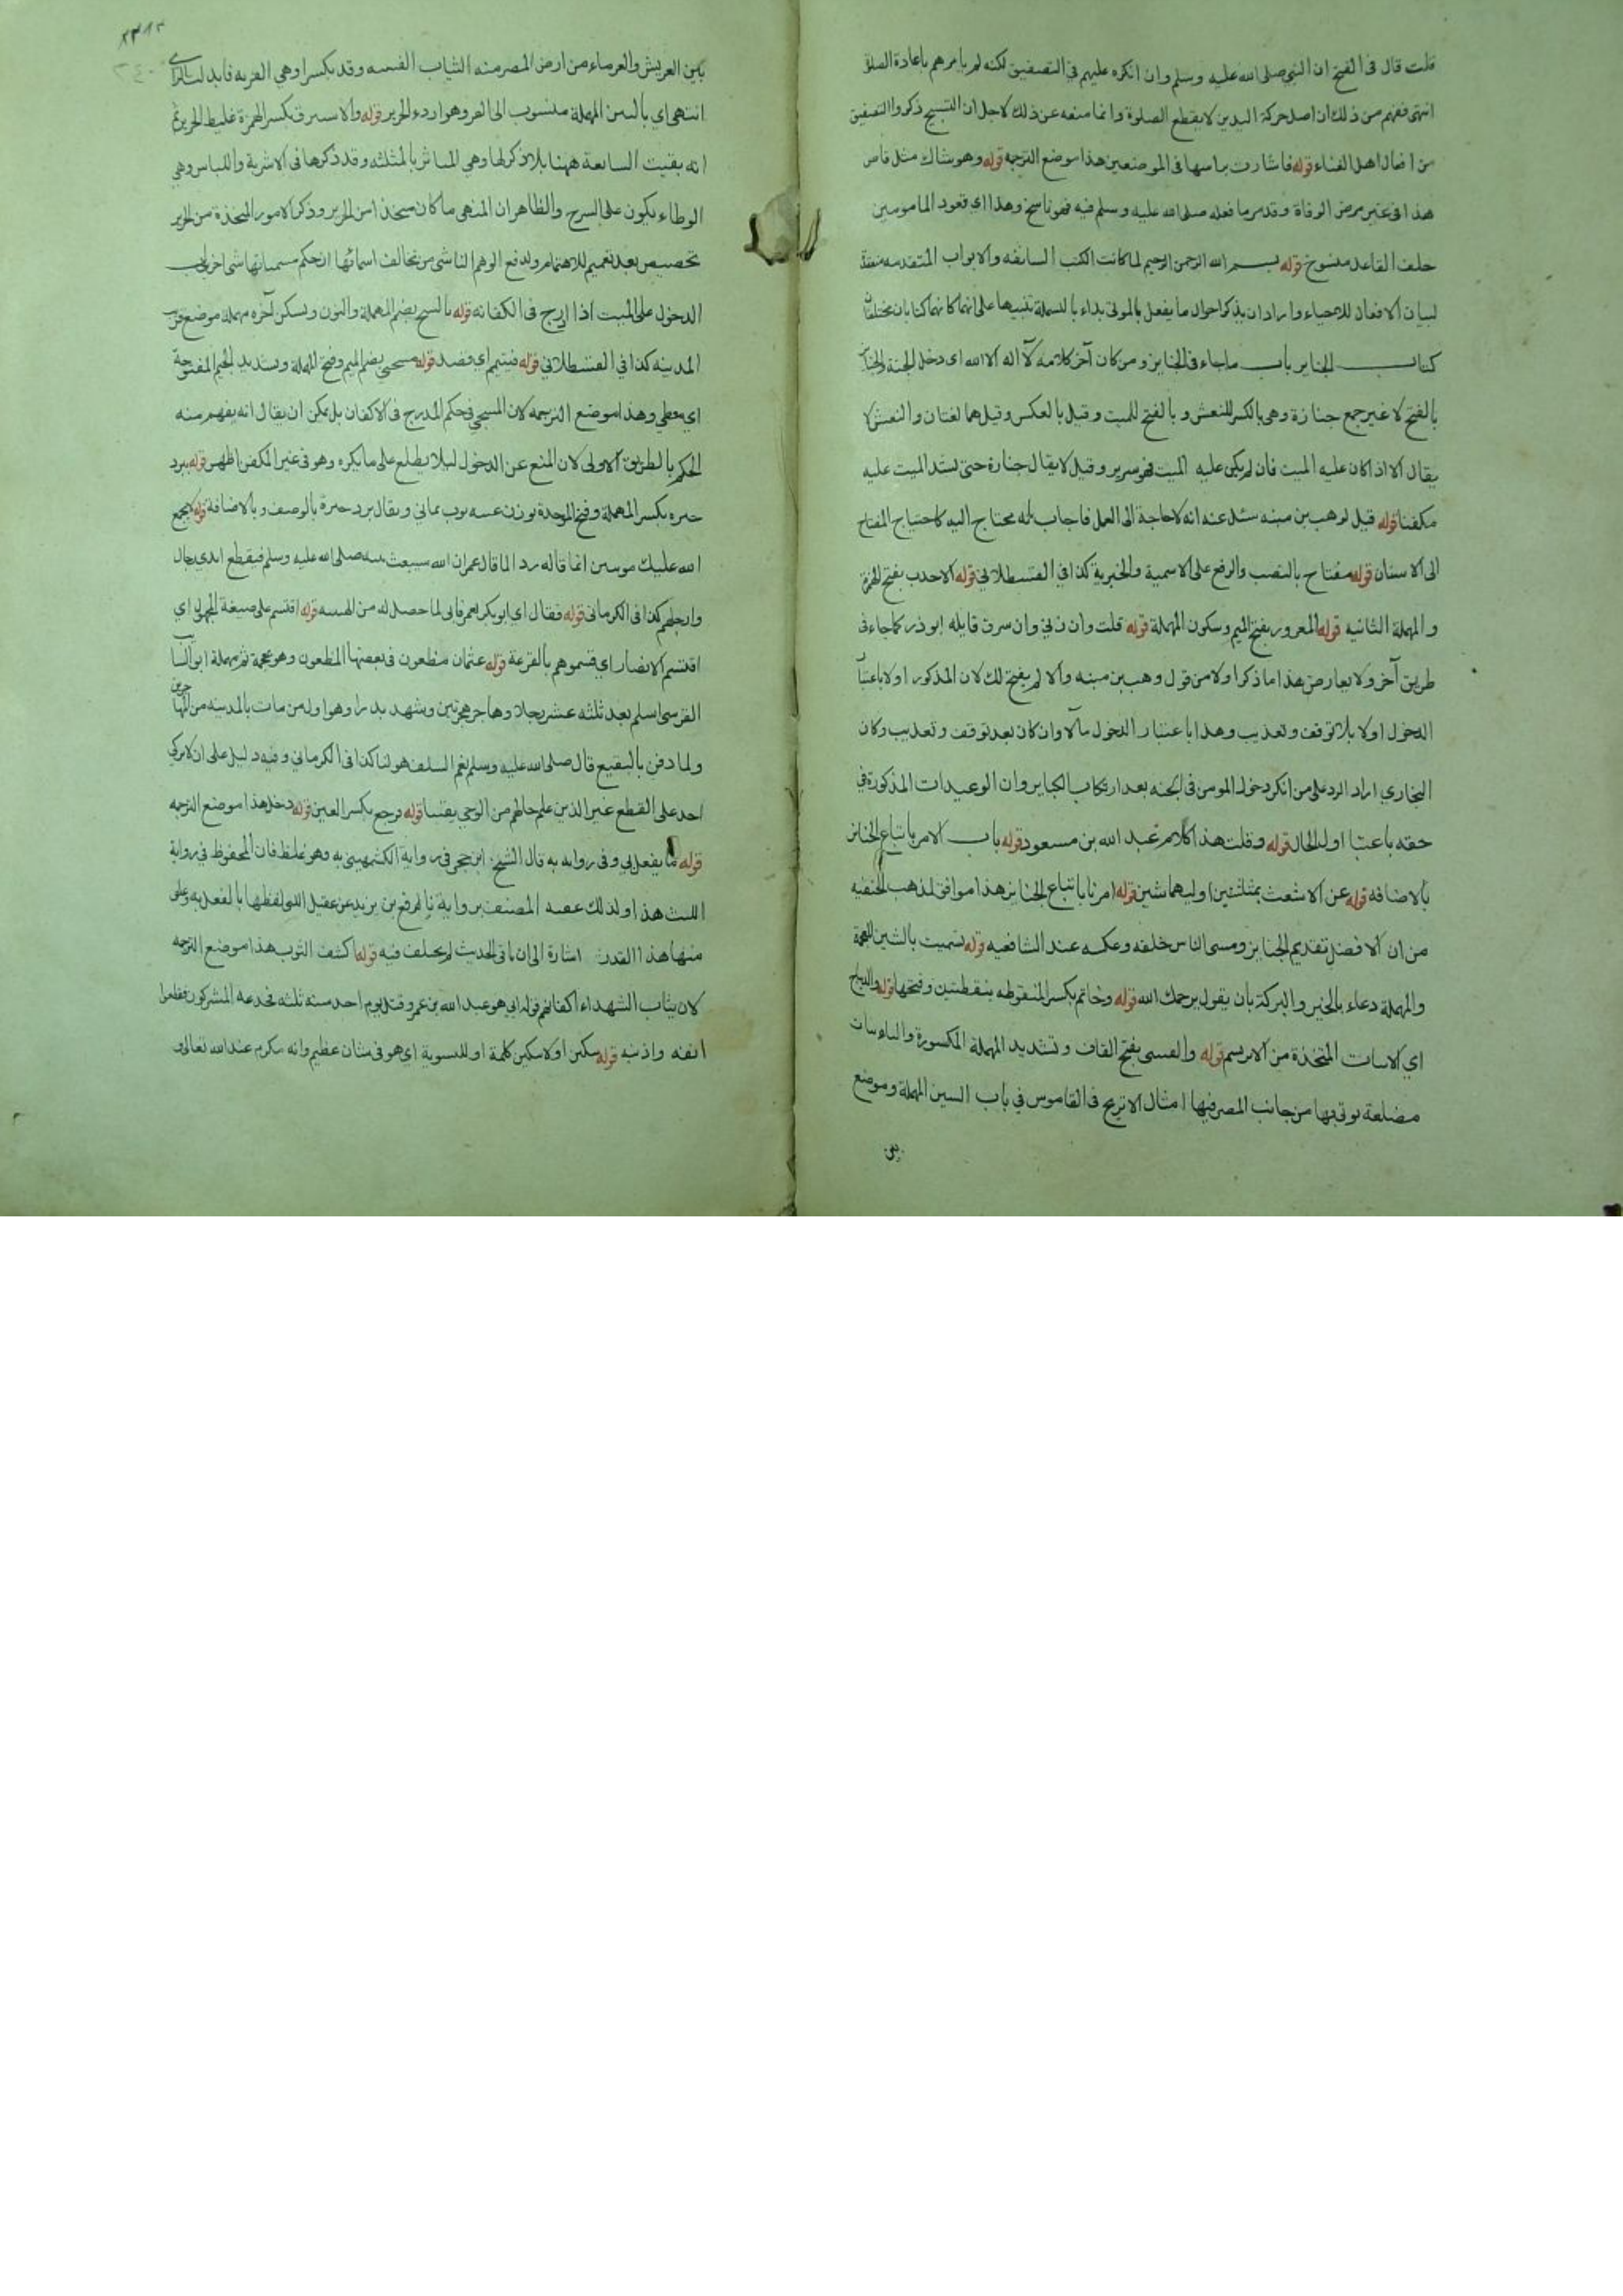 قلت قال فى الفتح ان النبي صلى الله عليه وسلم وان انكره عليهم في التصفيق لكنه لم يامرهم باعادة الصلوة
انتهى ففهم من ذلك ان اصل حركة اليدين لا يقطع الصلوة وانما منعه عن ذلك لاجل ان التسبيح ذكر والتصفيق
من افعال اهل الغناء قوله فاشارت براسها فى الموضعين هذا موضع الترجمه قوله وهو شاك مثل قاض
هذا فى غير مرض الوفاة وقد مر ما فعله صلى الله عليه وسلم فيه فهو ناسخ وهذا اى قعود المامومين
خلف القاعد منسوخ قوله بسم الله الرحمن الرحيم لما كانت الكتب السابقه والابواب المتقدمه منعقدة
لبيان الافعال للاحياء واراد ان يذكر احوال ما يفعل بالموتى بداء بالبسملة تنبيها على انهما كانهما كتابان مختلفان
كتاب الجنايز باب ما جاء فى الجنايز ومن كان آخر كلامه لا اله الا الله اى دخل الجنة والجنايز
بالفتح لا غير جمع جنازة وهى بالكسر للنعش وبالفتح للميت وقيل بالعكس وقيل هما لغتان والنعش لا
يقال الا اذا كان عليه الميت فان لم يكن عليه الميت فهو سرير وقيل لا يقال جنازة حتى يشد الميت عليه
مكفنا قوله قيل لوهب بن منبه سئل عنه انه لا حاجة الى العمل فاجاب بانه محتاج اليه كاحتياج المفتاح
الى الاسنان قوله مفتاح بالنصب والرفع على الاسمية والخبرية كذا في القسطلاني قوله الاحدب بفتح الهمزة
والمهملة الثانيه قوله المعرور بفتح الميم وسكون المهملة قوله قلت وان زنى وان سرق قايله ابو ذر كما جاء فى
طريق آخر ولا يعارض هذا ما ذكر اولا من قول وهب بن منبه والا لم يفتح لك لان المذكور اولا باعتبار
الدخول اولا بلا توقف وتعذيب وهذا باعتبار الدخول مآلا وان كان بعد توقف وتعذيب وكان
البخاري اراد الرد على من انكر دخول المومن فى الجنه بعد ارتكاب الكباير وان الوعيدات المذكورة في
حقه باعتبار اول الحال قوله وقلت هذا كلام عبد الله بن مسعود قوله باب الامر باتباع الجنائز
بالاضافه قوله عن الاشعث بمثلثتين اوليهما شين قوله امرنا باتباع الجنايز هذا موافق لمذهب الحنفيه
من ان الافضل تقديم الجنايز ومسى الناس خلفه وعكسه عند الشافعيه قوله تشميت بالشين المعجمة
والمهملة دعاء بالخير والبركة بان يقول يرحمك الله قوله وخاتم بكسر المنقوطه بنقطتين وفتحها قوله والديباج
اي المتخذة من الابريسم قوله والقسى بفتح القاف وتشديد المهملة المكسورة والياء
مضلعة يوتى بها من جانب المصر فيها امثال الاترج فى القاموس في باب السين المهملة وموضع
بين
بين العريش والفرماء من ارض المصر منه الثياب القسيه وقد يكسر او هي القزيه فابدلت الزاى
انتهى اي بالسين المهملة منسوب الى القز وهو اردء الحرير قوله والاستبرق بكسر الهمزة غليظ الحرير ثم
انه بقيت السابعة ههنا بلا ذكرلها وهي المياثر بالمثلثه وقد ذكرها فى الاشربة واللباس وهي
الوطاء يكون على السرج والظاهر ان المنهى ما كان متخذا من الحرير وذكر الامور المتخذة من الحرير
تخصيص بعد تعميم للاهتمام ولدفع الوهم الناشي من تخالف اسمائها ان حكم مسمياتها شى اخر باب
الدخول على الميت اذا ادرج فى اكفانه قوله بالسنح بضم المهملة والنون ويسكن آخره مهملة موضع قرب
المدينه كذا في القسطلاني قوله فتيمم اي فقصد قوله مسجى بضم الميم وفتح المهملة وتشديد الجيم المفتوحة
اي مغطى وهذا موضع الترجمه لان المسجى في حكم المدرج فى الاكفان بل يمكن ان يقال انه يفهم منه
الحكم بالطريق الاولى لان المنع عن الدخول ليلا يطلع على ما يكره وهو فى غير المكفن اظهر قوله ببرد
حبره بكسر المهملة وفتح الموحدة بوزن عنبه ثوب يماني ويقال برد حبرة بالوصف وبالاضافة قوله لا يجمع
الله عليك موتتين انما قاله رد الما قال عمران الله سيبعث نبيه صلى الله عليه وسلم فيقطع ايدي رجال
وارجلهم كذا فى الكرمانى قوله فقال اي ابو بكر لعمر فابى لما حصل له من الهيبه قوله اقتسم على صيغة المجهول اي
اقتسم الانصار اي قسموهم بالقرعة قوله عثمان مظعون فى بعضها المظعون وهو بمعجمة ثم بمهملة ابو السايب
القرسى اسلم بعد ثلثه عشر رجلا وهاجر هجرتين وشهد بدرا وهو اول من مات بالمدينه من المهاجرين
ولما دفن بالبقيع قال صلى الله عليه وسلم نعم السلف هو لنا كذا فى الكرماني وفيه دليل على ان لا يزكي
احد على القطع غير الذين علم حالهم من الوحي يقينا قوله ورجع بكسر العين قوله دخل هذا موضع الترجمه
قوله ما يفعل بي وفى روايه به قال الشيخ ابن حجر فى رواية الكشميهني به وهو غلط فان المحفوظ في رواية
الليث هذا ولذلك عقبه المصنف برواية نافع بن يزيد عن عقيل التى لفظها بالفعل به وعلق
منها هذا القدر اشارة الى ان باقى الحديث لم يختلف فيه قوله اكشف الثوب هذا موضع الترجمه
لان ثياب الشهداء اكفانهم قوله ابي هو عبد الله بن عمرو قتل يوم احد سنه ثلثه فجدعه المشركون فقطعوا
انفه واذنيه قوله تبكين او لا تبكين كلمة او للتسوية اي هو فى شان عظيم وانه مكرم عند الله تعالى